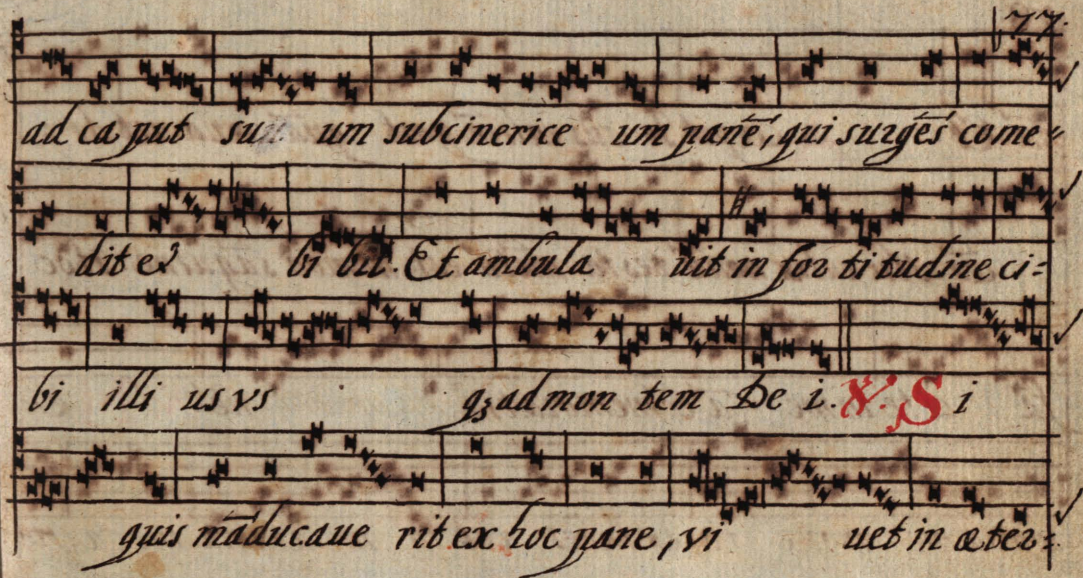 77.
ad ca put su um subcinerice um panē, qui surgēs come-
dit et bi bit. Et ambula uit in for ti tudine ci-
bi illi us vs qꝫ ad mon tem De i. ℣. S i
quis māducaue rit ex hoc pane, vi uet in æter-